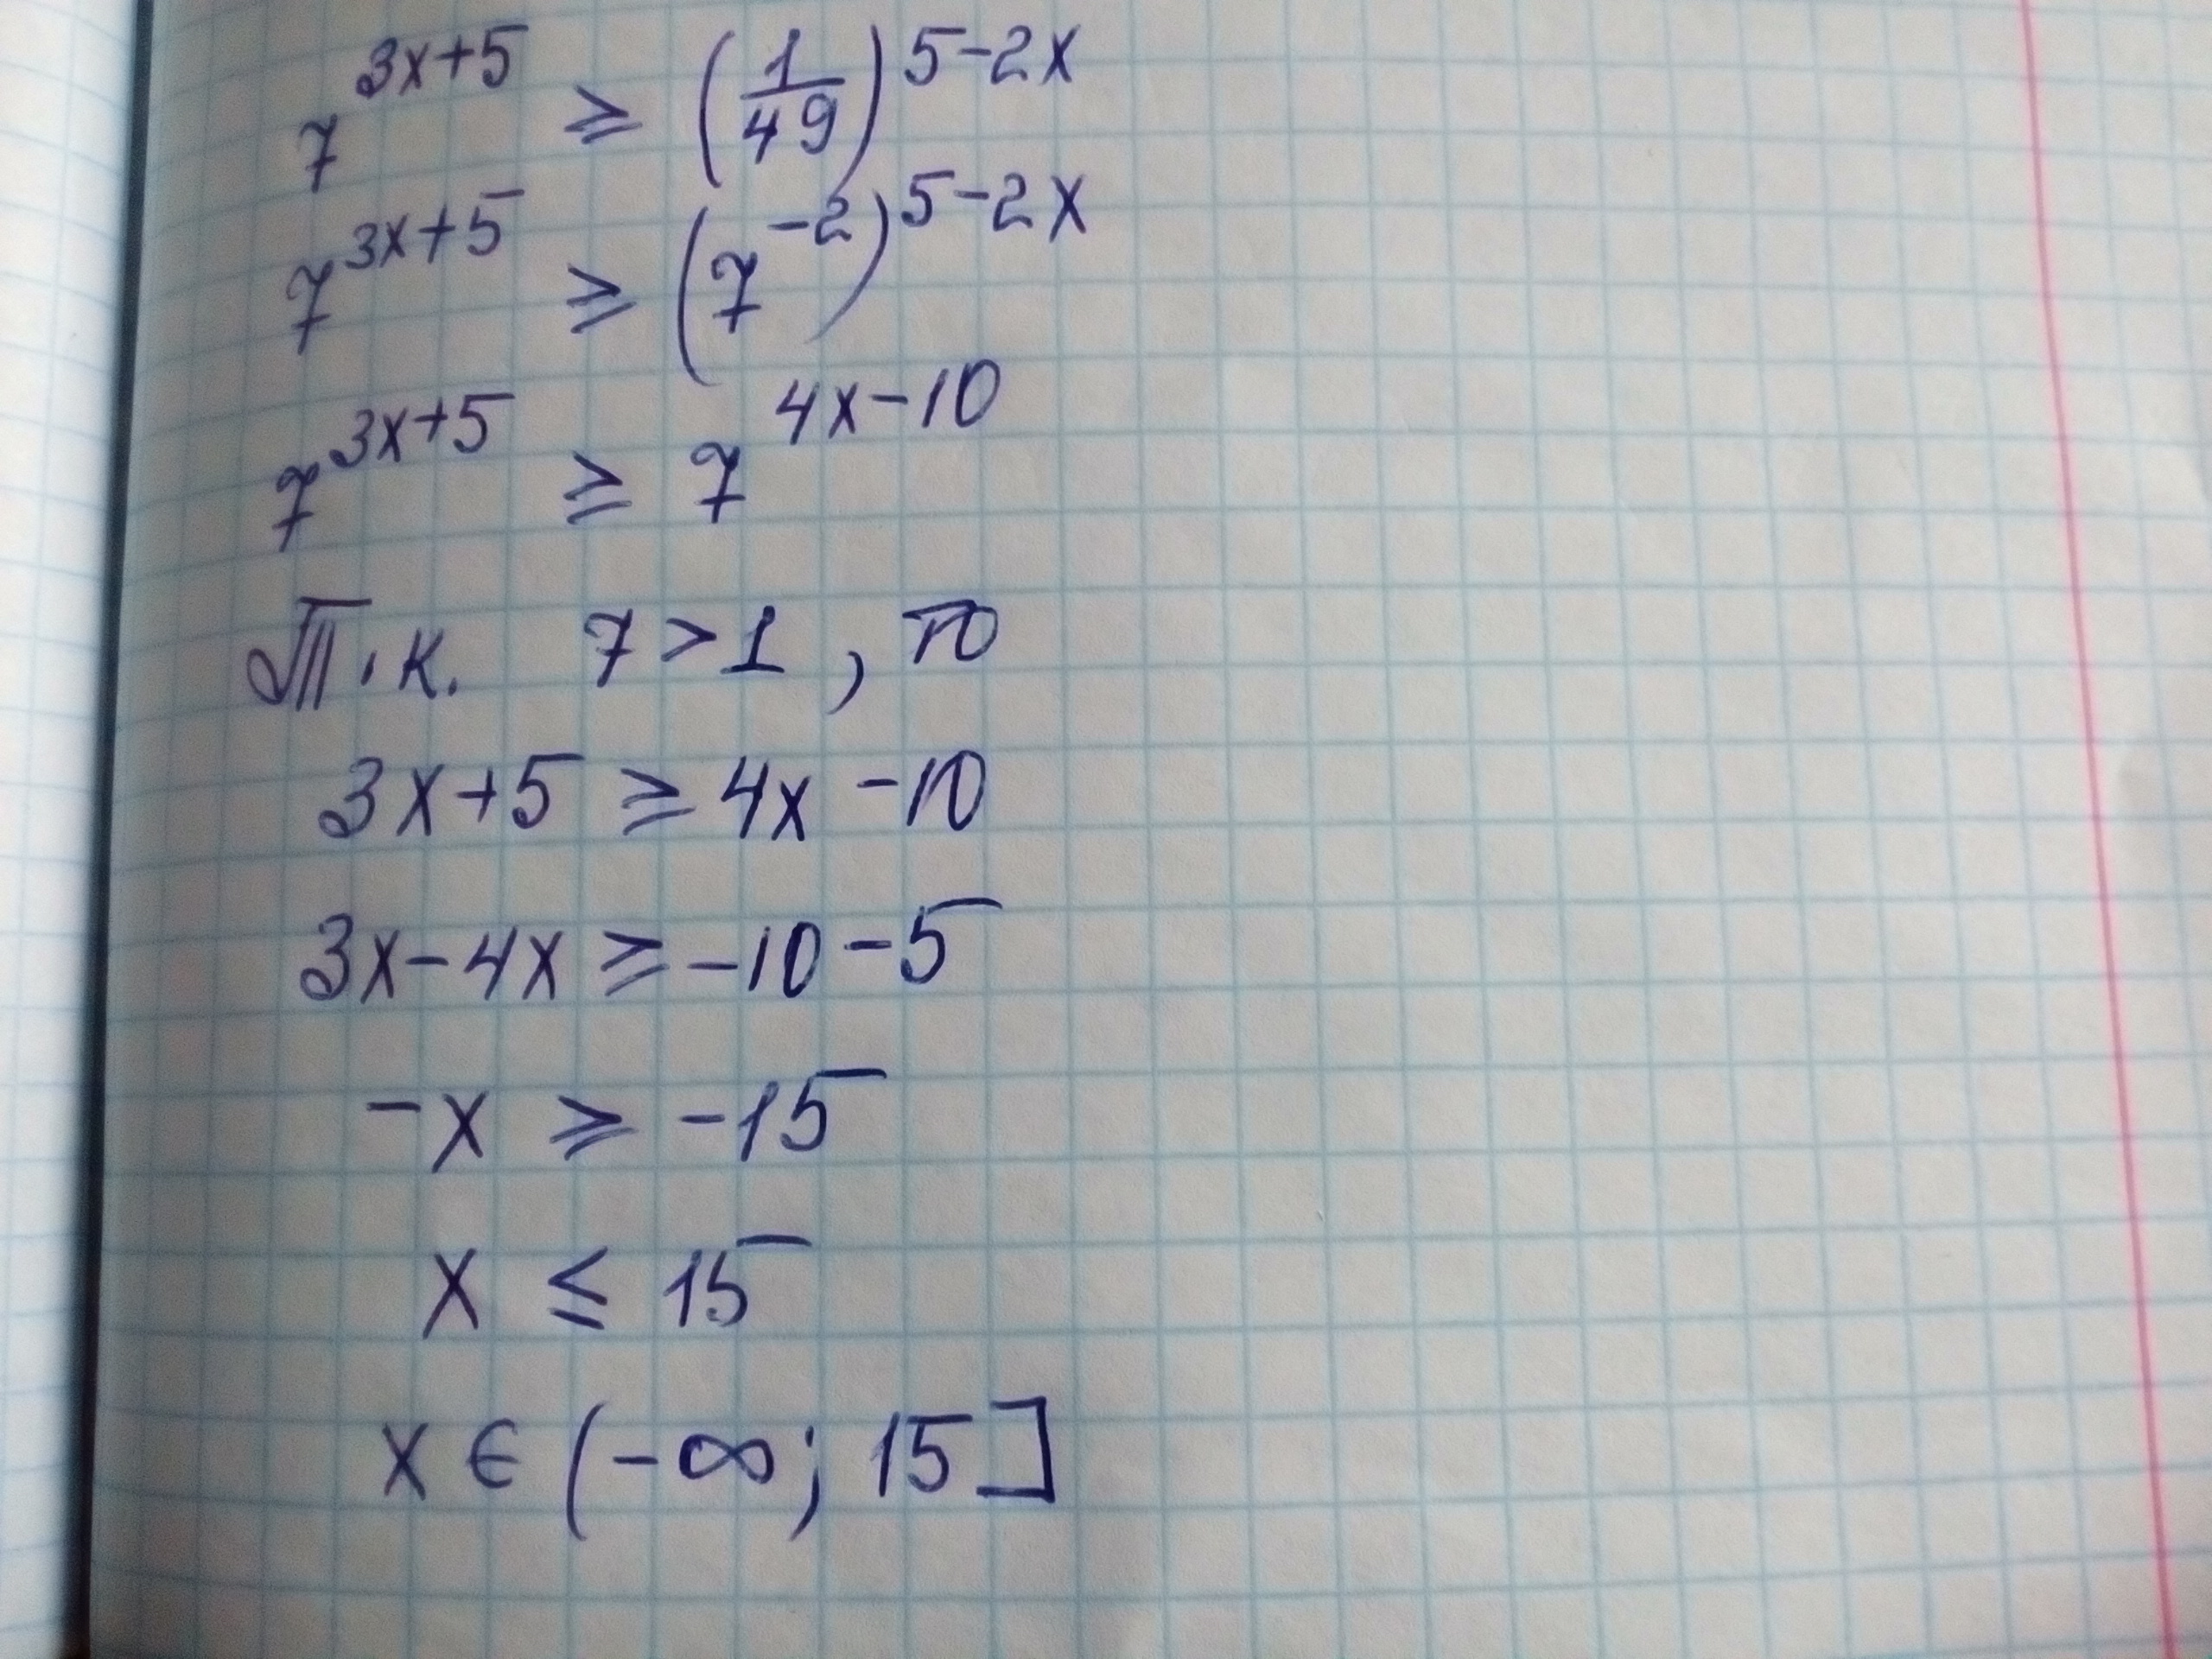 7^{3x+5} ≥ (1/49)^{5-2x}
7^{3x+5} ≥ (7^{-2})^{5-2x}
7^{3x+5} ≥ 7^{4x-10}
Т.к. 7 > 1, то
3x+5 ≥ 4x-10
3x-4x ≥ -10-5
-x ≥ -15
x ≤ 15
x ∈ (-∞; 15]